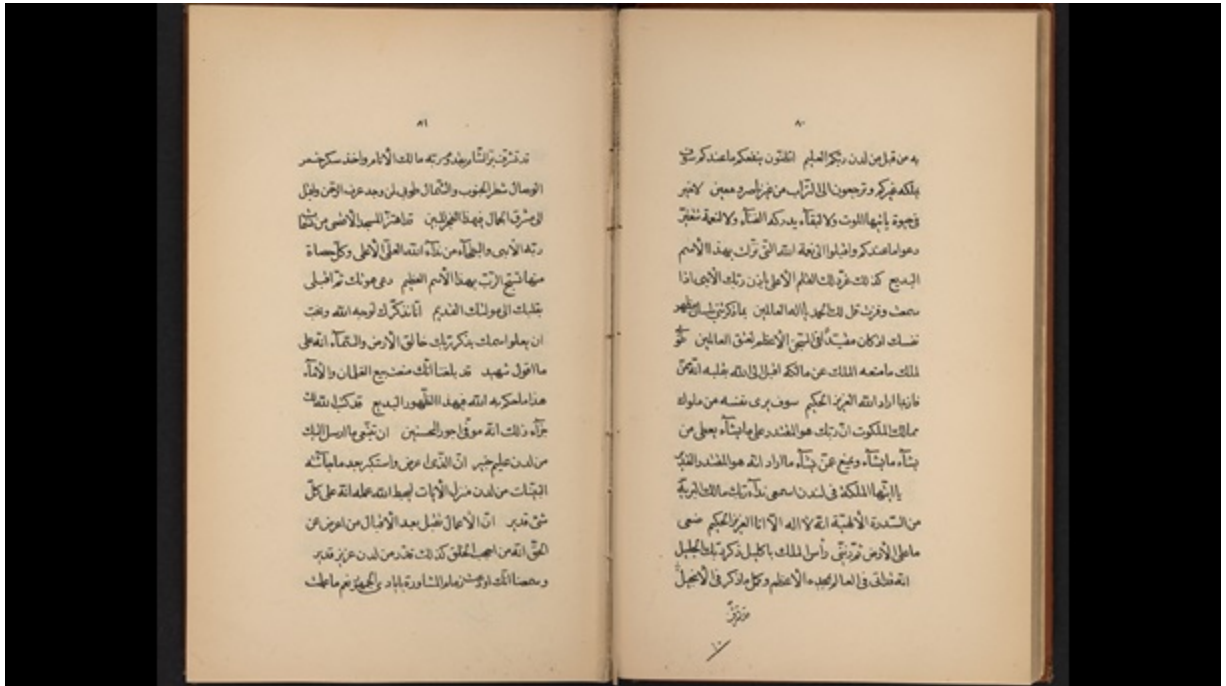 ٨٠
به من قبل من لدن ربّكم العليم اتظنّون ينفعكم ما عندكم سوف
يملكه غيركم وترجعون الى التّراب من غير ناصر ومعين لا خير
فى حيوة يأتيها الموت ولا لبقآء يدركه الفنآء ولا لنعمة تتغيّر
دعوا ما عندكم واقبلوا الى نعمة الله الّتى نزّلت بهذا الأسم
البديع كذلك غرّد لك القلم الأعلى باذن ربّك الأبهى اذا
سمعت وقرئت قل لك الحمد يا اله العالمين بما ذكرتنى بلسان مظهر
نفسك اذ كان مقيّداً فى السّجن الأعظم لعتق العالمين طوبى
لملك ما منعه الملك عن مالكه اقبل الى الله بقلبه انّه ممّن
فاز بما اراد الله العزيز الحكيم سوف يرى نفسه من ملوك
ممالك الملكوت انّ ربّك هو المقتدر على ما يشآء يعطى من
يشآء ما يشآء ويمنع عمّن يشآء ما اراد انّه هو المقتدر القدير
يا ايّتها الملكة فى لندن اسمعى ندآء ربّك مالك البريّة
من السّدرة الألهيّة انّه لا اله الّا انا العزيز الحكيم ضعى
ما على الأرض ثمّ زيّنى رأس الملك باكليل ذكر ربّك الجليل
انّه قد اتى فى العالم بمجده الأعظم وكمل ما ذكر فى الأنجيل
قد تشرّف
١٠
٨١
قد تشرّف برّ الشّام بقدوم ربّه مالك الأنام واخذ سكر خمر
الوصال شطر الجنوب والشّمال طوبى لمن وجد عرف الرّحمن واقبل
الى مشرق الجمال بهذا الفجر المبين قد اهتزّ المسجد الأقصى من نسمات
ربّه الأبهى والبطحآء من ندآء الله العلىّ الأعلى وكلّ حصاة
منها تسبّح الرّبّ بهذا الأسم العظيم دعى هواك ثمّ اقبلى
بقلبك الى مولاك القديم انّا نذكّرك لوجه الله ونحبّ
ان يعلو اسمك بذكر ربّك خالق الأرض والسّمآء انّه على
ما اقول شهيد قد بلغنا انّك منعت بيع الغلمان والأمآء
هذا ما حكم به الله فى هذا الظّهور البديع قد كتب الله لك
جزآء ذلك انّه موفّى اجور المحسنين ان تتّبعى ما ارسل اليك
من لدن عليم خبير انّ الّذى اعرض واستكبر بعد ما جآئته
البيّنات من لدن منزل الأيات ليحبط الله عمله انّه على كلّ
شئ قدير انّ الأعمال تقبل بعد الأقبال من اعرض عن
الحقّ انّه من احجب الخلق كذلك قدّر من لدن عزيز قدير
وسمعنا انّك اودعت زمام المشاورة بايادى الجمهور نعم ما عملت